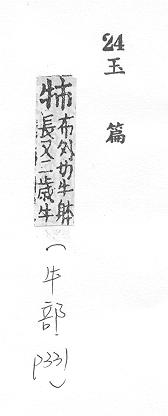 24玉篇
㸬布外切牛躰
長又二歲牛
(牛部p331)